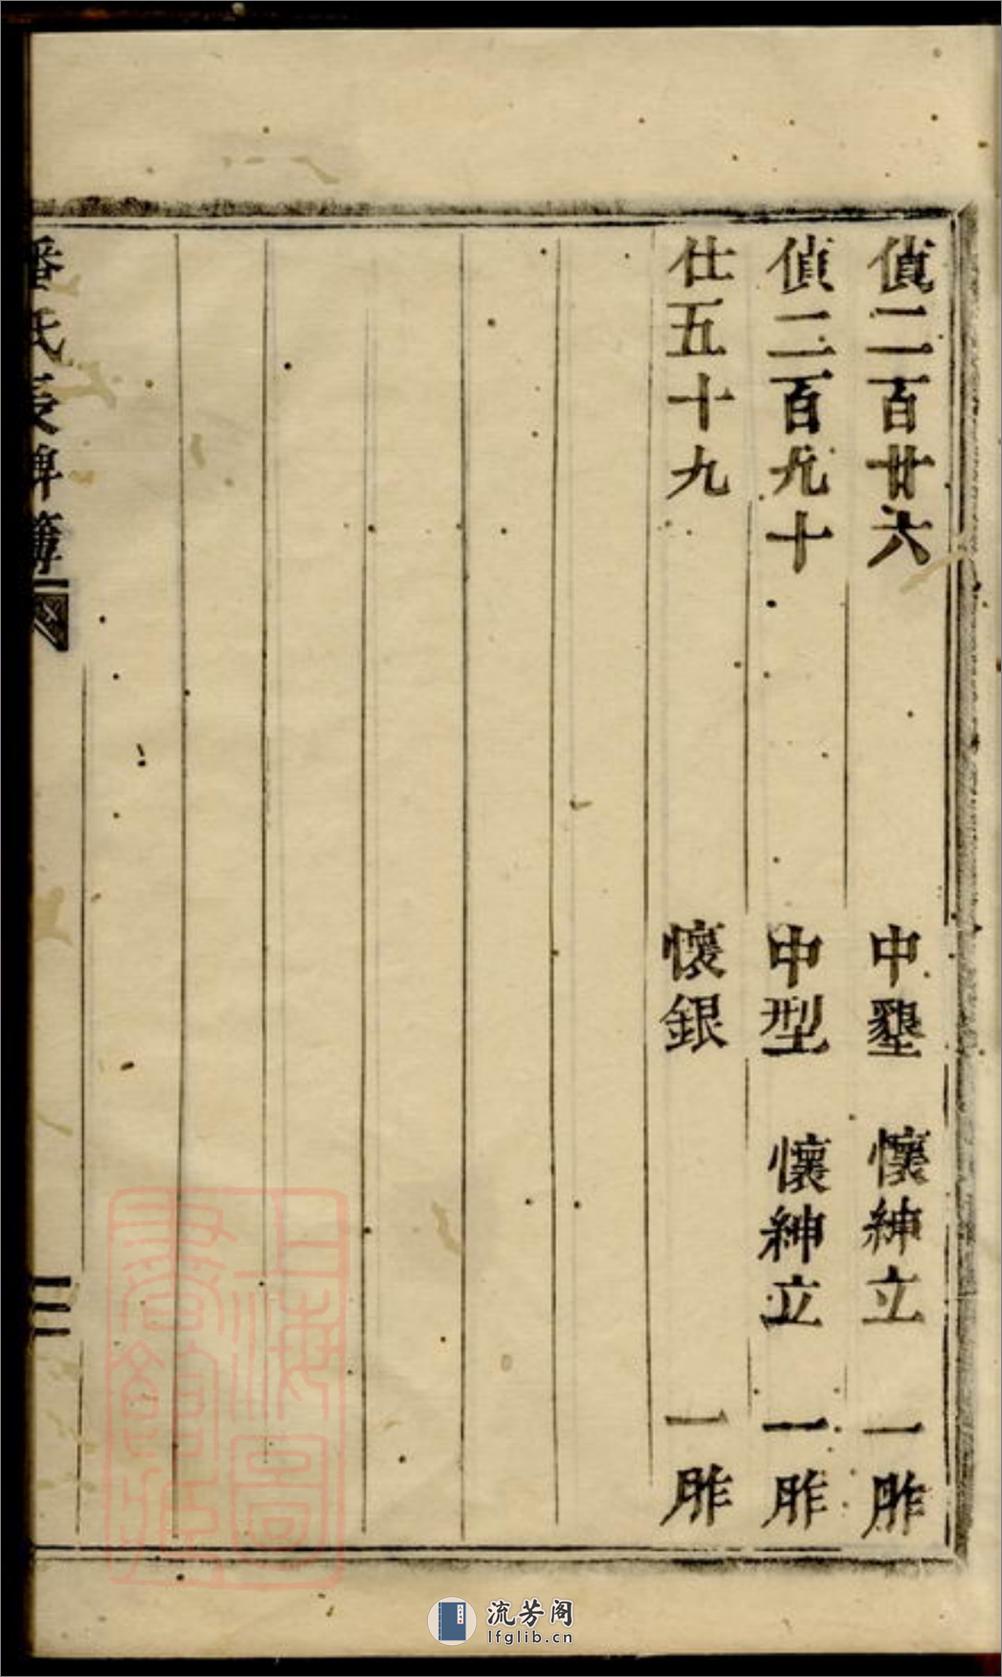 偵二百廿六　中墾　懷紳立　一胙
偵二百九十　中型　懷紳立　一胙
仕五十九　懷銀　一胙
潘氏長牌簿
三
上海圖書館藏
流芳阁
lfglib.cn